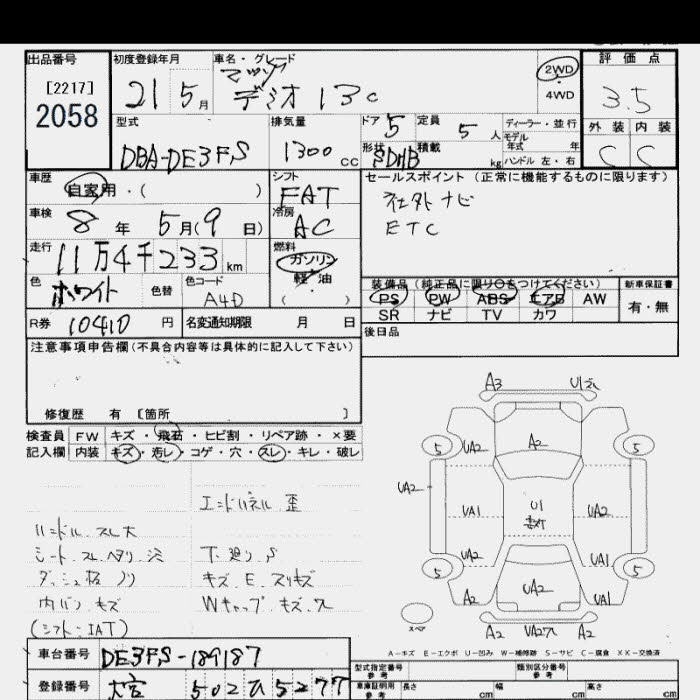 出品番号
[2217]
2058
初度登録年月
21 5月
車名・グレード
マツダ
デミオ 13C
2WD
4WD
評価点
3.5
外装 内装
C C
型式
DBA-DE3FS
排気量
1300 cc
ドア 5
定員 5 人
ディーラー・並行
モデル年式 年
形状 5DHB
積載 kg
ハンドル 左・右
車歴
自家用・( )
シフト
FAT
セールスポイント (正常に機能するものに限ります)
社外ナビ
ETC
車検
8年 5月(9日)
冷房
AC
走行
11万4千233km
燃料
ガソリン
軽・油
( )
色
ホワイト
色替
色コード
A4D
装備品 (純正品に限り○をつけてください)
新車保証書
PS PW ABS エアB AW
SR ナビ TV カワ
有・無
R券 10410 円
名変通知期限 月 日
後日品
注意事項申告欄(不具合内容等は具体的に記入して下さい)
修復歴 有 [箇所 ]
検査員記入欄
FW キズ・飛石・ヒビ割・リペア跡・×要
内装 キズ・汚レ・コゲ・穴・スレ・キレ・破レ
エンドパネル 歪
ハンドル スレ大
シート スレ ヘタリ
下廻り S
ダッシュ板 ノリ
キズ E スリキズ
内バン キズ
Wキャップ キズ
(シフト:IAT)
A3 U1
5 UA2 A2 5
UA2
UA1 U1 UA2
UA2 UA1
5 UA2 5
A2 UA1
スペア
A2 A2
A-キズ E-エクボ U-凹み W-補修跡 S-サビ C-腐食 XX-交換済
車台番号
DE3FS-189187
登録番号
大宮 502 ひ 5277
型式指定番号
参考
類別区分番号
参考
車庫証明用
参考
長さ cm
幅 cm
高さ cm